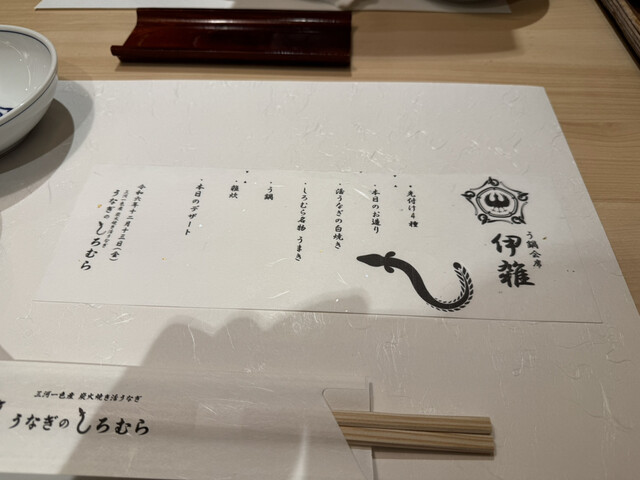 う鍋会席
伊雑
・先付け4種
・本日のお造り
・活うなぎの白焼き
・しろむら名物 うまき
・う鍋
・雑炊
・本日のデザート
令和六年十二月十三日(金)
三河一色産 炭火焼き活うなぎ
うなぎの しろむら
三河一色産 炭火焼き活うなぎ
うなぎの しろむら